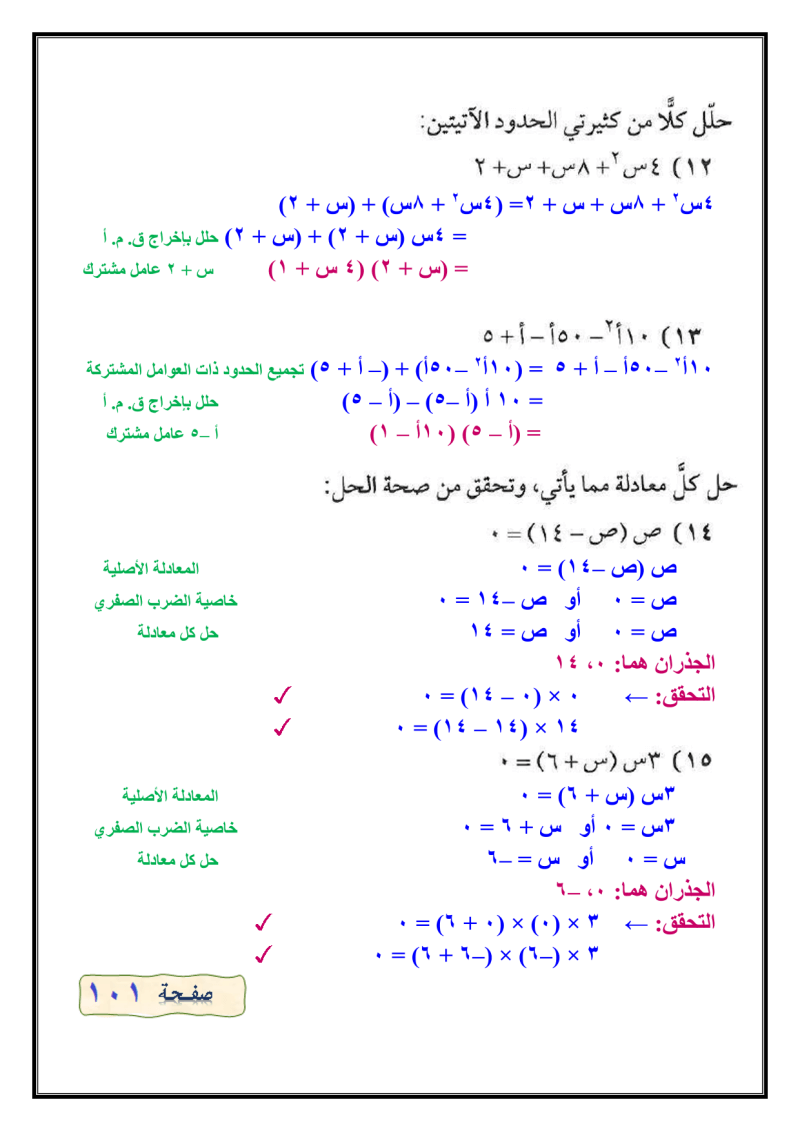 حلّل كلًّا من كثيرتي الحدود الآتيتين:
١٢) ٤س٢ + ٨س + س + ٢
٤س٢ + ٨س + س + ٢ = (٤س٢ + ٨س) + (س + ٢)
= ٤س (س + ٢) + (س + ٢) حلل بإخراج ق. م. أ
= (س + ٢) (٤ س + ١) س + ٢ عامل مشترك
١٣) ١٠أ٢ – ٥٠أ – أ + ٥
١٠أ٢ –٥٠أ – أ + ٥ = (١٠أ٢ –٥٠أ) + (– أ + ٥) تجميع الحدود ذات العوامل المشتركة
= ١٠ أ (أ –٥) – (أ – ٥) حلل بإخراج ق. م. أ
= (أ – ٥) (١٠أ – ١) أ –٥ عامل مشترك
حل كلَّ معادلة مما يأتي، وتحقق من صحة الحل:
١٤) ص (ص – ١٤) = ٠
ص (ص –١٤) = ٠ المعادلة الأصلية
ص = ٠ أو ص –١٤ = ٠ خاصية الضرب الصفري
ص = ٠ أو ص = ١٤ حل كل معادلة
الجذران هما: ٠، ١٤
التحقق: ← ٠ × (٠ – ١٤) = ٠ ✓
١٤ × (١٤ – ١٤) = ٠ ✓
١٥) ٣س (س + ٦) = ٠
٣س (س + ٦) = ٠ المعادلة الأصلية
٣س = ٠ أو س + ٦ = ٠ خاصية الضرب الصفري
س = ٠ أو س = –٦ حل كل معادلة
الجذران هما: ٠، –٦
التحقق: ← ٣ × (٠) × (٠ + ٦) = ٠ ✓
٣ × (–٦) × (–٦ + ٦) = ٠ ✓
صفحة ١٠١